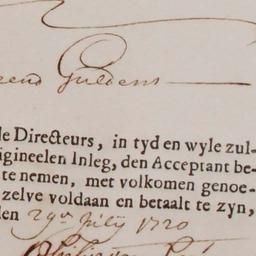 rend Guldens
le Directeurs, in tyd en wyle zul-
igineelen Inleg, den Acceptant be-
te nemen, met volkomen genoe-
zelve voldaan en betaalt te zyn,
len 29en July 1720